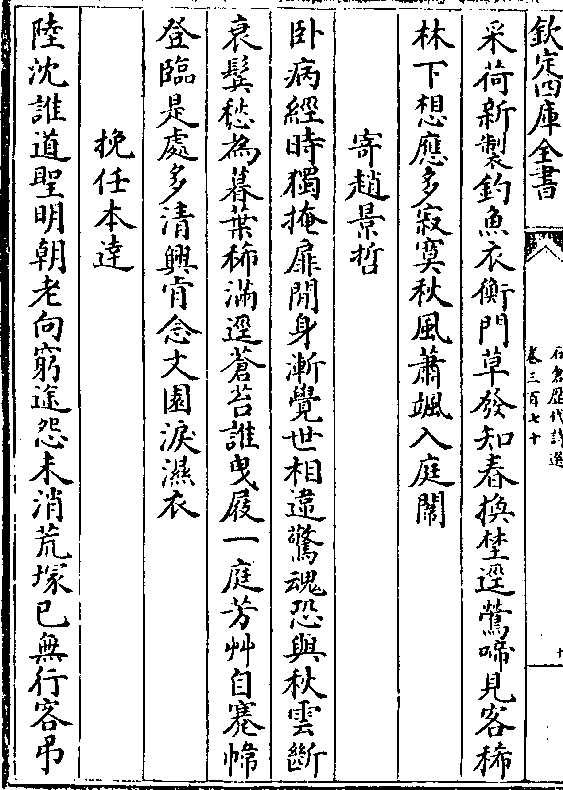 欽定四庫全書
石倉歴代詩選
卷三百七十
十
采荷新製釣魚衣衡門草發知春換埜逕鶯啼見客稀
林下想應多寂寞秋風蕭颯入庭闈
寄趙景哲
卧病經時獨掩扉閒身漸覺世相違驚魂恐與秋雲斷
衰鬂愁為暮葉稀滿逕蒼苔誰曵屐一庭芳艸自寒幃
登臨是處多清興肯念文園淚濕衣
挽任本逹
陸沈誰道聖明朝老向窮途怨未消荒塚已無行客弔